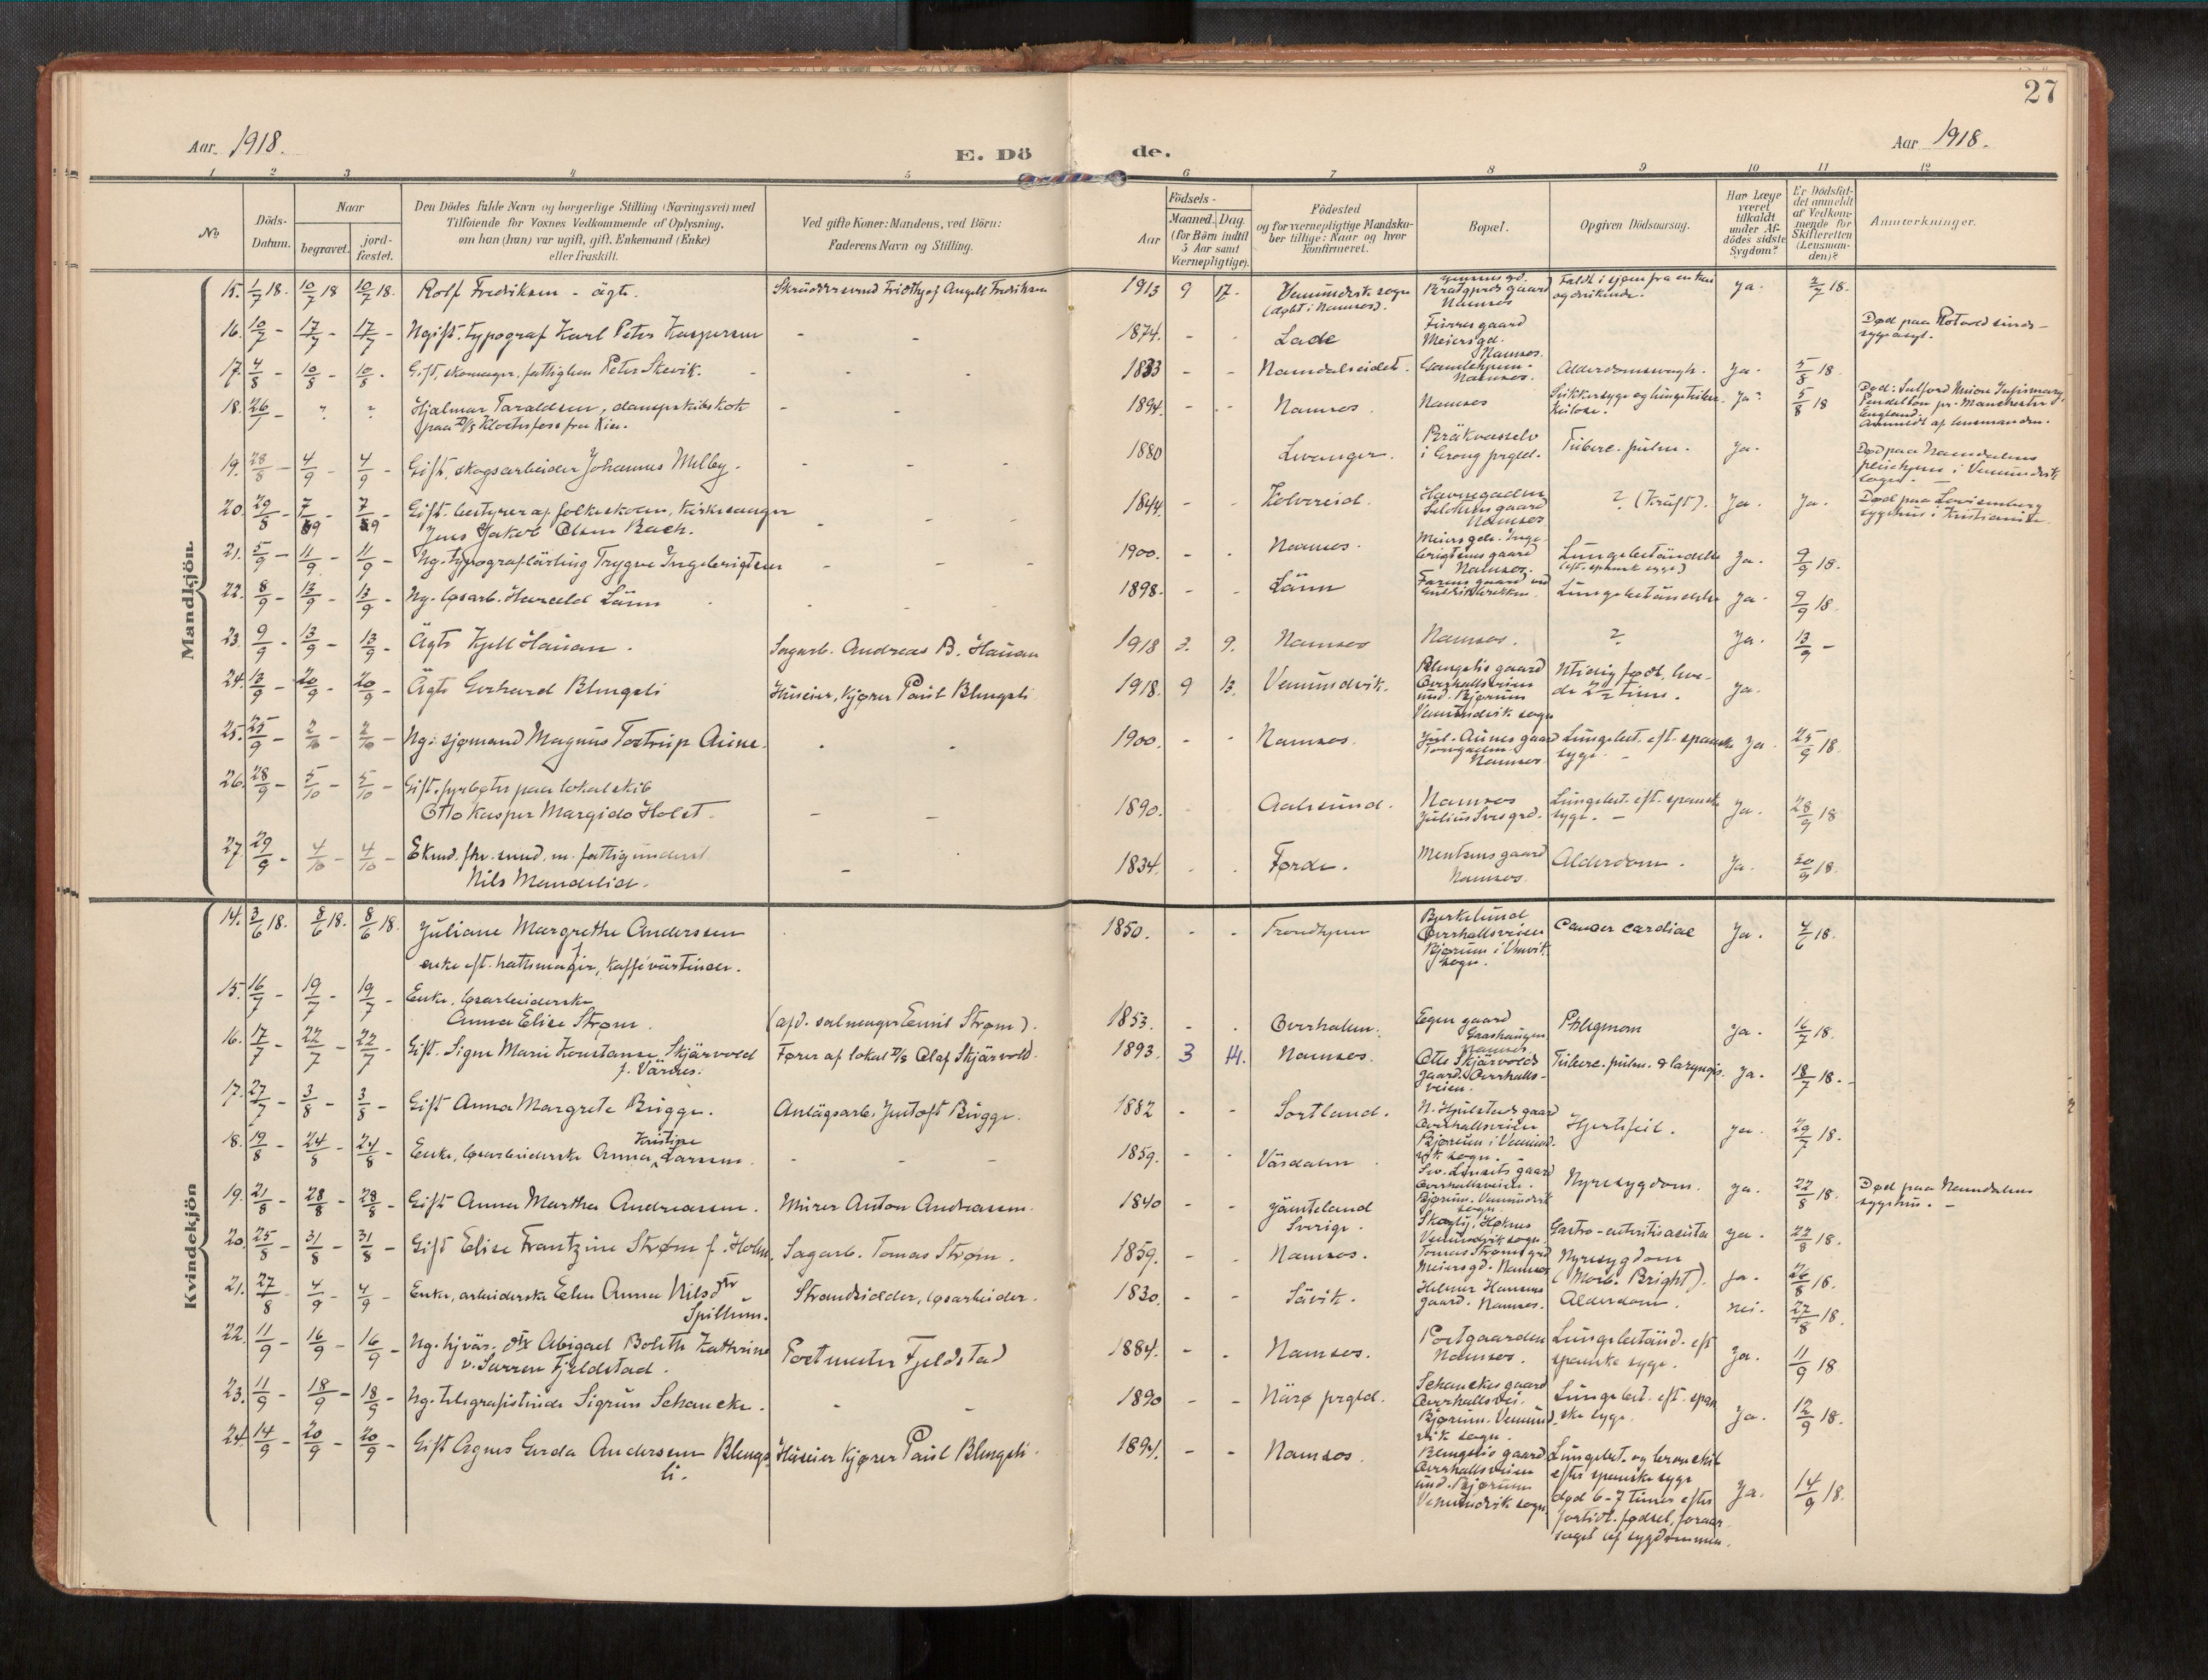 27
Aar 1918.
E. Dö de.
Aar 1918.
1 2 3 4 5 6 7 8 9 10 11 12
No
Döds-Datum.
Naar begravet. jordfæstet.
Den Dödes fulde Navn og borgerlige Stilling (Næringsvei) med
Tilföiende for Voxnes Vedkommende af Oplysning,
om han (hun) var ugift, gift, Enkemand (Enke)
eller fraskilt.
Ved gifte Koner: Mandens, ved Börn:
Faderens Navn og Stilling.
Födsels-
Aar
Maaned. Dag.
(for Börn indtil
5 Aar samt
Værnepligtige).
Födested
og for værnepligtige Mandska-
ber tillige: Naar og hvor
konfirmeret.
Bopæl.
Opgiven Dödsaarsag.
Har Læge
været
tilkaldt
under Af-
dödes sidste
Sygdom?
Er Dödsfal-
det anmeldt
af Vedkom-
mende for
Skifteretten
(Lensman-
den)?
Anmærkninger.
Mandkjön.
15. 1/7 18. 10/7 18 10/7 18. Rolf Fredriksen - ägte. Skrüddersvend Fridthjof Angell Fredriksen 1913 9 17. Vemundvik sogn (døbt i Namsos). Namsos Faldt i sjøen fra en kai og druknede. Ja. 2/7 18.
16. 10/7 - 17/7 - 17/7 - Ugift. typograf Karl Peter Kaspersen - - 1874. - - Lade Finnes gaard Meiersgd. Namsos. Død paa Rotvold sinds-
sygeasyl.
17. 4/8 - 10/8 - 10/8 - Gift, skomager, fattiglem Peter Skevik. - - 1833 - - Namdalseidet. Gamlehjem. Namsos. Alderdomssvagh. Ja. 5/8 18.
18. 26/ - ? ? Hjalmar Taraldsen, dampskibskok
paa D/S Klostefoss fra Kr.a. - - 1894. - - Namsos. Namsos Sukkersyge og lungetuber-
kulose. Ja? 5/8 18 Død: Salford Union Infirmary,
Pendelton pr. Manchester
England.
Anmeldt af lensmanden.
19. 28/8 - 4/9 - 4/9 - Gift, skogsarbeider Johannes Melby. - - 1880 Levanger. i Grong prgld. Tuberc. pulm. Ja. Død paa Namdalens
pleiehjem i Vemundvik
sogn. -
20. 29/8 - 7/9 - 7/9 - Gift. bestyrer af folkeskolen, kirkesanger
Jens Jakob Olsen Bach. - - 1844. - - Kolvereid. Havnegaden Namsos ? (Kräft). Ja. Ja. Død paa Lovisenberg
sygehus i Kristiania.
21. 5/9 - 11/9 - 11/9 - Ug. typograflärling Trygve Ingebrigtsen - - 1900. - - Namsos. Meiersgdn. Inge-
brigtsens gaard
Namsos. Lungebetändelse
(eft. spansk syge) Ja. 9/9 18.
22. 8/9 - 13/9 - 13/9 - Ug. løsarb. Harald Länn 1898. - - Länn Lungebetändelse Ja. 9/9 18.
23. 9/9 - 13/9 - 13/9 - Ägte Kjell Hauan. Sagarb. Andreas B. Hauan 1918 3. 9. Namsos Namsos. ? Ja. 13/9 -
24. 13/9 - 20/9 - 20/9 - Ägte Gerhard Blengsli Huseier, kjører Paul Blengsli 1918. 9 13. Vemundvik. Blengslis gaard
Overhallsveien
und. Bjørum
Vemundvik sogn Utidig født, leve-
de 2 1/2 time. Ja.
25. 25/9 - 2/10 - 2/10 - Ug: sjømand Magnus Tostrup Aune. - - 1900. - - Namsos. Jul. Aunes gaard
Namsos Lungebet. eft. spanske
syge. - Ja. 25/9 18.
26. 28/9 - 5/10 - 5/10 - Gift. fyrbøter paa lokalskib
Otto Kasper Margido Holst. - - 1890. Aalesund. Namsos Lungebet. eft. spansk
syge. - Ja. 28/9 18
27. 29/9 - 4/10 - 4/10 - Ekmd. fhv. smed, m. fattigunderst
Nils Mandelid. - - 1834. - - Førde. Mentzens gaard
Namsos. Alderdom. Ja. 30/9 18.
Kvindekjön
14. 3/6 18. 8/6 18. 8/6 18. Juliane Margrethe Anderssen
enke eft. hattemager, kaffevärtinde. 1850. - - Trondhjem Birkelund
Overhallsveien
Bjørum i Vmvik
sogn. Cancer cardiae Ja. 4/6 18.
15. 16/7 - 19/7 - 19/7 - Enke, løsarbeiderske
Anna Elise Strøm. (afd. salmager Emil Strøm). 1853. - - Overhalen. Egen gaard
Namsos. Phlegmom Ja. 16/7 18.
16. 17/7 - 22/7 - 22/7 - Gift. Signe Marie Konstanse Skjärvold
f. Värnes. Fører af lokal D/S Olaf Skjärvold. 1893. 3 14. Namsos. Otto Skjärvolds
gaard. Overhalls-
veien. Tuberc. pulm. & laryngis. Ja. 18/7 18. -
17. 27/7 - 3/8 - 3/8 - Gift Anna Margrete Bugge. Anlägsarb. Jentoft Bugge. 1882 - - Sortland. Overhallsveien
Bjørum i Vemund-
vik sogn. - Hjertefeil. Ja. 29/7 18.
18. 19/8 - 24/8 - 24/8 - Enke, løsarbeiderske Anna Kristine Larssen. - - 1859. - - Värdalen Overhallsveien.
Bjørum. Vemundvik
sogn. Nyresygdom. Ja. 22/8 18. Død paa Namdalens
sygehus. -
19. 21/8 - 28/8 - 28/8 - Gift Anna Martha Andreassen. Murer Anton Andreassen. 1840 Jämteland
Sverige. Vemundvik sogn. Gastro-enteritis acuta Ja. 22/8 18.
20. 25/8 - 31/8 - 31/8 - Gift Elise Frantzine Strøm f. Holm. Sagarb. Tomas Strøm. 1859. - - Namsos. Tomas Strøms grd
Meiersgd. Namsos Nyresygdom
(Morb. Bright). Ja. 26/8 18.
21. 27/8 - 4/9 - 4/9 - Enke, arbeiderske Elen Anna Nilsdtr
Spillum. Strandsidder, løsarbeider. 1830. - - Sävik. Helmer Hansens
gaard. Namsos. Alderdom. nei. 27/8 18.
22. 11/9 - 16/9 - 16/9 - Ug. hjväs. dtr Abigael Bolette Kathrine
v. Surren Fjeldstad. Postmester Fjeldstad 1884. - - Namsos. Postgaarden
Namsos. Lungebetänd. eft
spanske syge. Ja. 11/9 18
23. 11/9 - 18/9 - 18/9 - Ug. telegrafistinde Sigrun Schancke. - - 1890 - - Närø prgld. Schanckes gaard
Overhallsvei.
Bjørum. Vemund-
vik sogn. Lungebet. eft. span
ske syge. Ja. 12/9 18.
24. 14/9 - 20/9 - 20/9 - Gift Agnes Gerda Andersen Blengs-
li. Huseier kjører Paul Blengsli. 1891. - - Namsos Blengslis gaard
Overhallsveien
und. Bjørum
Vemundvik sogn. Lungebet. og bronchit
efter spanske syge
død 6-7 timer efter
fortidl. fødsel, foraar-
saget af sygdommen. Ja. 14/9 18.